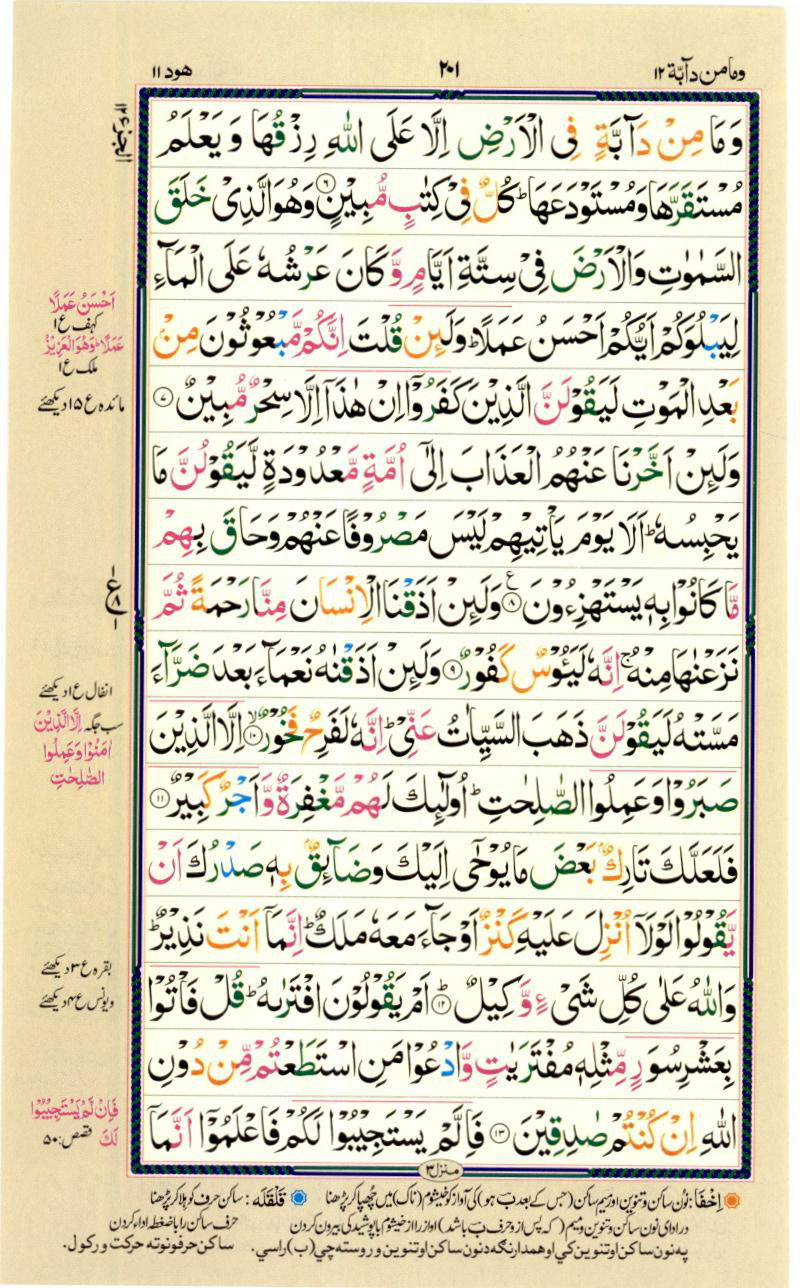 وما من دآبة ۱۲
۲۰۱
هود ۱۱
الجزء ۱۲
وَمَا مِنْ دَآبَّةٍ فِی الْاَرْضِ اِلَّا عَلَی اللّٰهِ رِزْقُهَا وَیَعْلَمُ
مُسْتَقَرَّهَا وَمُسْتَوْدَعَهَا ؕ كُلٌّ فِیْ كِتٰبٍ مُّبِیْنٍ ۶ وَهُوَ الَّذِیْ خَلَقَ
السَّمٰوٰتِ وَالْاَرْضَ فِیْ سِتَّةِ اَیَّامٍ وَّكَانَ عَرْشُهٗ عَلَی الْمَآءِ
لِیَبْلُوَكُمْ اَیُّكُمْ اَحْسَنُ عَمَلًا ؕ وَلَىِٕنْ قُلْتَ اِنَّكُمْ مَّبْعُوْثُوْنَ مِنْۢ
بَعْدِ الْمَوْتِ لَیَقُوْلَنَّ الَّذِیْنَ كَفَرُوْۤا اِنْ هٰذَاۤ اِلَّا سِحْرٌ مُّبِیْنٌ ۷
وَلَىِٕنْ اَخَّرْنَا عَنْهُمُ الْعَذَابَ اِلٰۤی اُمَّةٍ مَّعْدُوْدَةٍ لَّیَقُوْلُنَّ مَا
یَحْبِسُهٗ ؕ اَلَا یَوْمَ یَاْتِیْهِمْ لَیْسَ مَصْرُوْفًا عَنْهُمْ وَحَاقَ بِهِمْ
مَّا كَانُوْا بِهٖ یَسْتَهْزِءُوْنَ ۸ وَلَىِٕنْ اَذَقْنَا الْاِنْسَانَ مِنَّا رَحْمَةً ثُمَّ
نَزَعْنٰهَا مِنْهُ ۚ اِنَّهٗ لَیَـُٔوْسٌ كَفُوْرٌ ۹ وَلَىِٕنْ اَذَقْنٰهُ نَعْمَآءَ بَعْدَ ضَرَّآءَ
مَسَّتْهُ لَیَقُوْلَنَّ ذَهَبَ السَّیِّاٰتُ عَنِّیْ ؕ اِنَّهٗ لَفَرِحٌ فَخُوْرٌ ۱۰ اِلَّا الَّذِیْنَ
صَبَرُوْا وَعَمِلُوا الصّٰلِحٰتِ ؕ اُولٰٓىِٕكَ لَهُمْ مَّغْفِرَةٌ وَّاَجْرٌ كَبِیْرٌ ۱۱
فَلَعَلَّكَ تَارِكٌۢ بَعْضَ مَا یُوْحٰۤی اِلَیْكَ وَضَآىِٕقٌۢ بِهٖ صَدْرُكَ اَنْ
یَّقُوْلُوْا لَوْلَاۤ اُنْزِلَ عَلَیْهِ كَنْزٌ اَوْ جَآءَ مَعَهٗ مَلَكٌ ؕ اِنَّمَاۤ اَنْتَ نَذِیْرٌ ؕ
وَاللّٰهُ عَلٰی كُلِّ شَیْءٍ وَّكِیْلٌ ۱۲ اَمْ یَقُوْلُوْنَ افْتَرٰىهُ ؕ قُلْ فَاْتُوْا
بِعَشْرِ سُوَرٍ مِّثْلِهٖ مُفْتَرَیٰتٍ وَّادْعُوْا مَنِ اسْتَطَعْتُمْ مِّنْ دُوْنِ
اللّٰهِ اِنْ كُنْتُمْ صٰدِقِیْنَ ۱۳ فَاِلَّمْ یَسْتَجِیْبُوْا لَكُمْ فَاعْلَمُوْۤا اَنَّمَاۤ
اَحْسَنُ عَمَلًا
کہف ع۱
عَمَلًا ؕ وَهُوَ الْعَزِیْزُ
ملک ع۱
مائدہ ع۱۵ دیکھئے
ع ۸
انفال ع۱ دیکھئے
سب جگہ اِلَّا الَّذِیْنَ
اٰمَنُوْا وَعَمِلُوا
الصّٰلِحٰتِ
بقرہ ع۳ دیکھئے
ویونس ع۴ دیکھئے
فَاِنْ لَّمْ یَسْتَجِیْبُوْا
لَكَ قصص: ۵۰
منزل ۳
اِخفَا: نون ساکن و تنوین اور میم ساکن (جس کے بعد ب ہو) کی آواز کو خیشوم (ناک) میں چھپا کر پڑھنا قَلْقَلَه: ساکن حرف کو ہلا کر پڑھنا
در ادای نون ساکن و تنوین و میم (که پس از و حرف ب باشد) آواز را از خیشوم با پوشیدگی بیرون کردن حرف ساکن را با ضغطه اداء کردن
په نون ساکن او تنوین کې او همدارنگه د نون ساکن او تنوین وروسته چې (ب) راسي. ساکن حرفو نو ته حرکت ورکول.